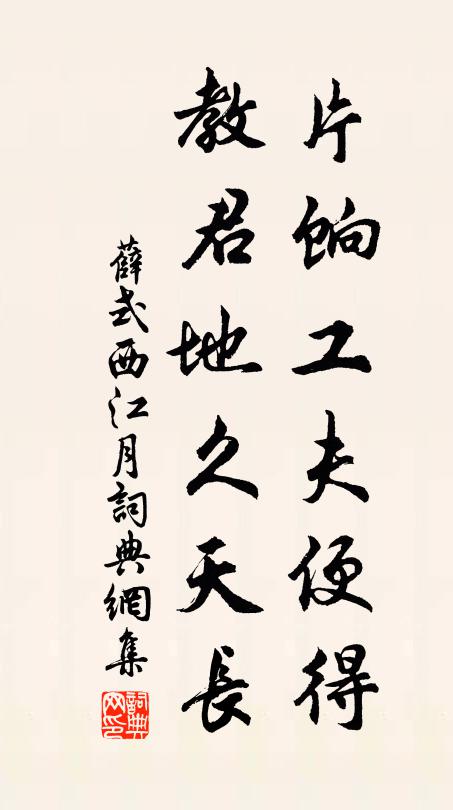 片餉工夫便得
教君地久天長
薛式西江月詞典網集
詞典网印